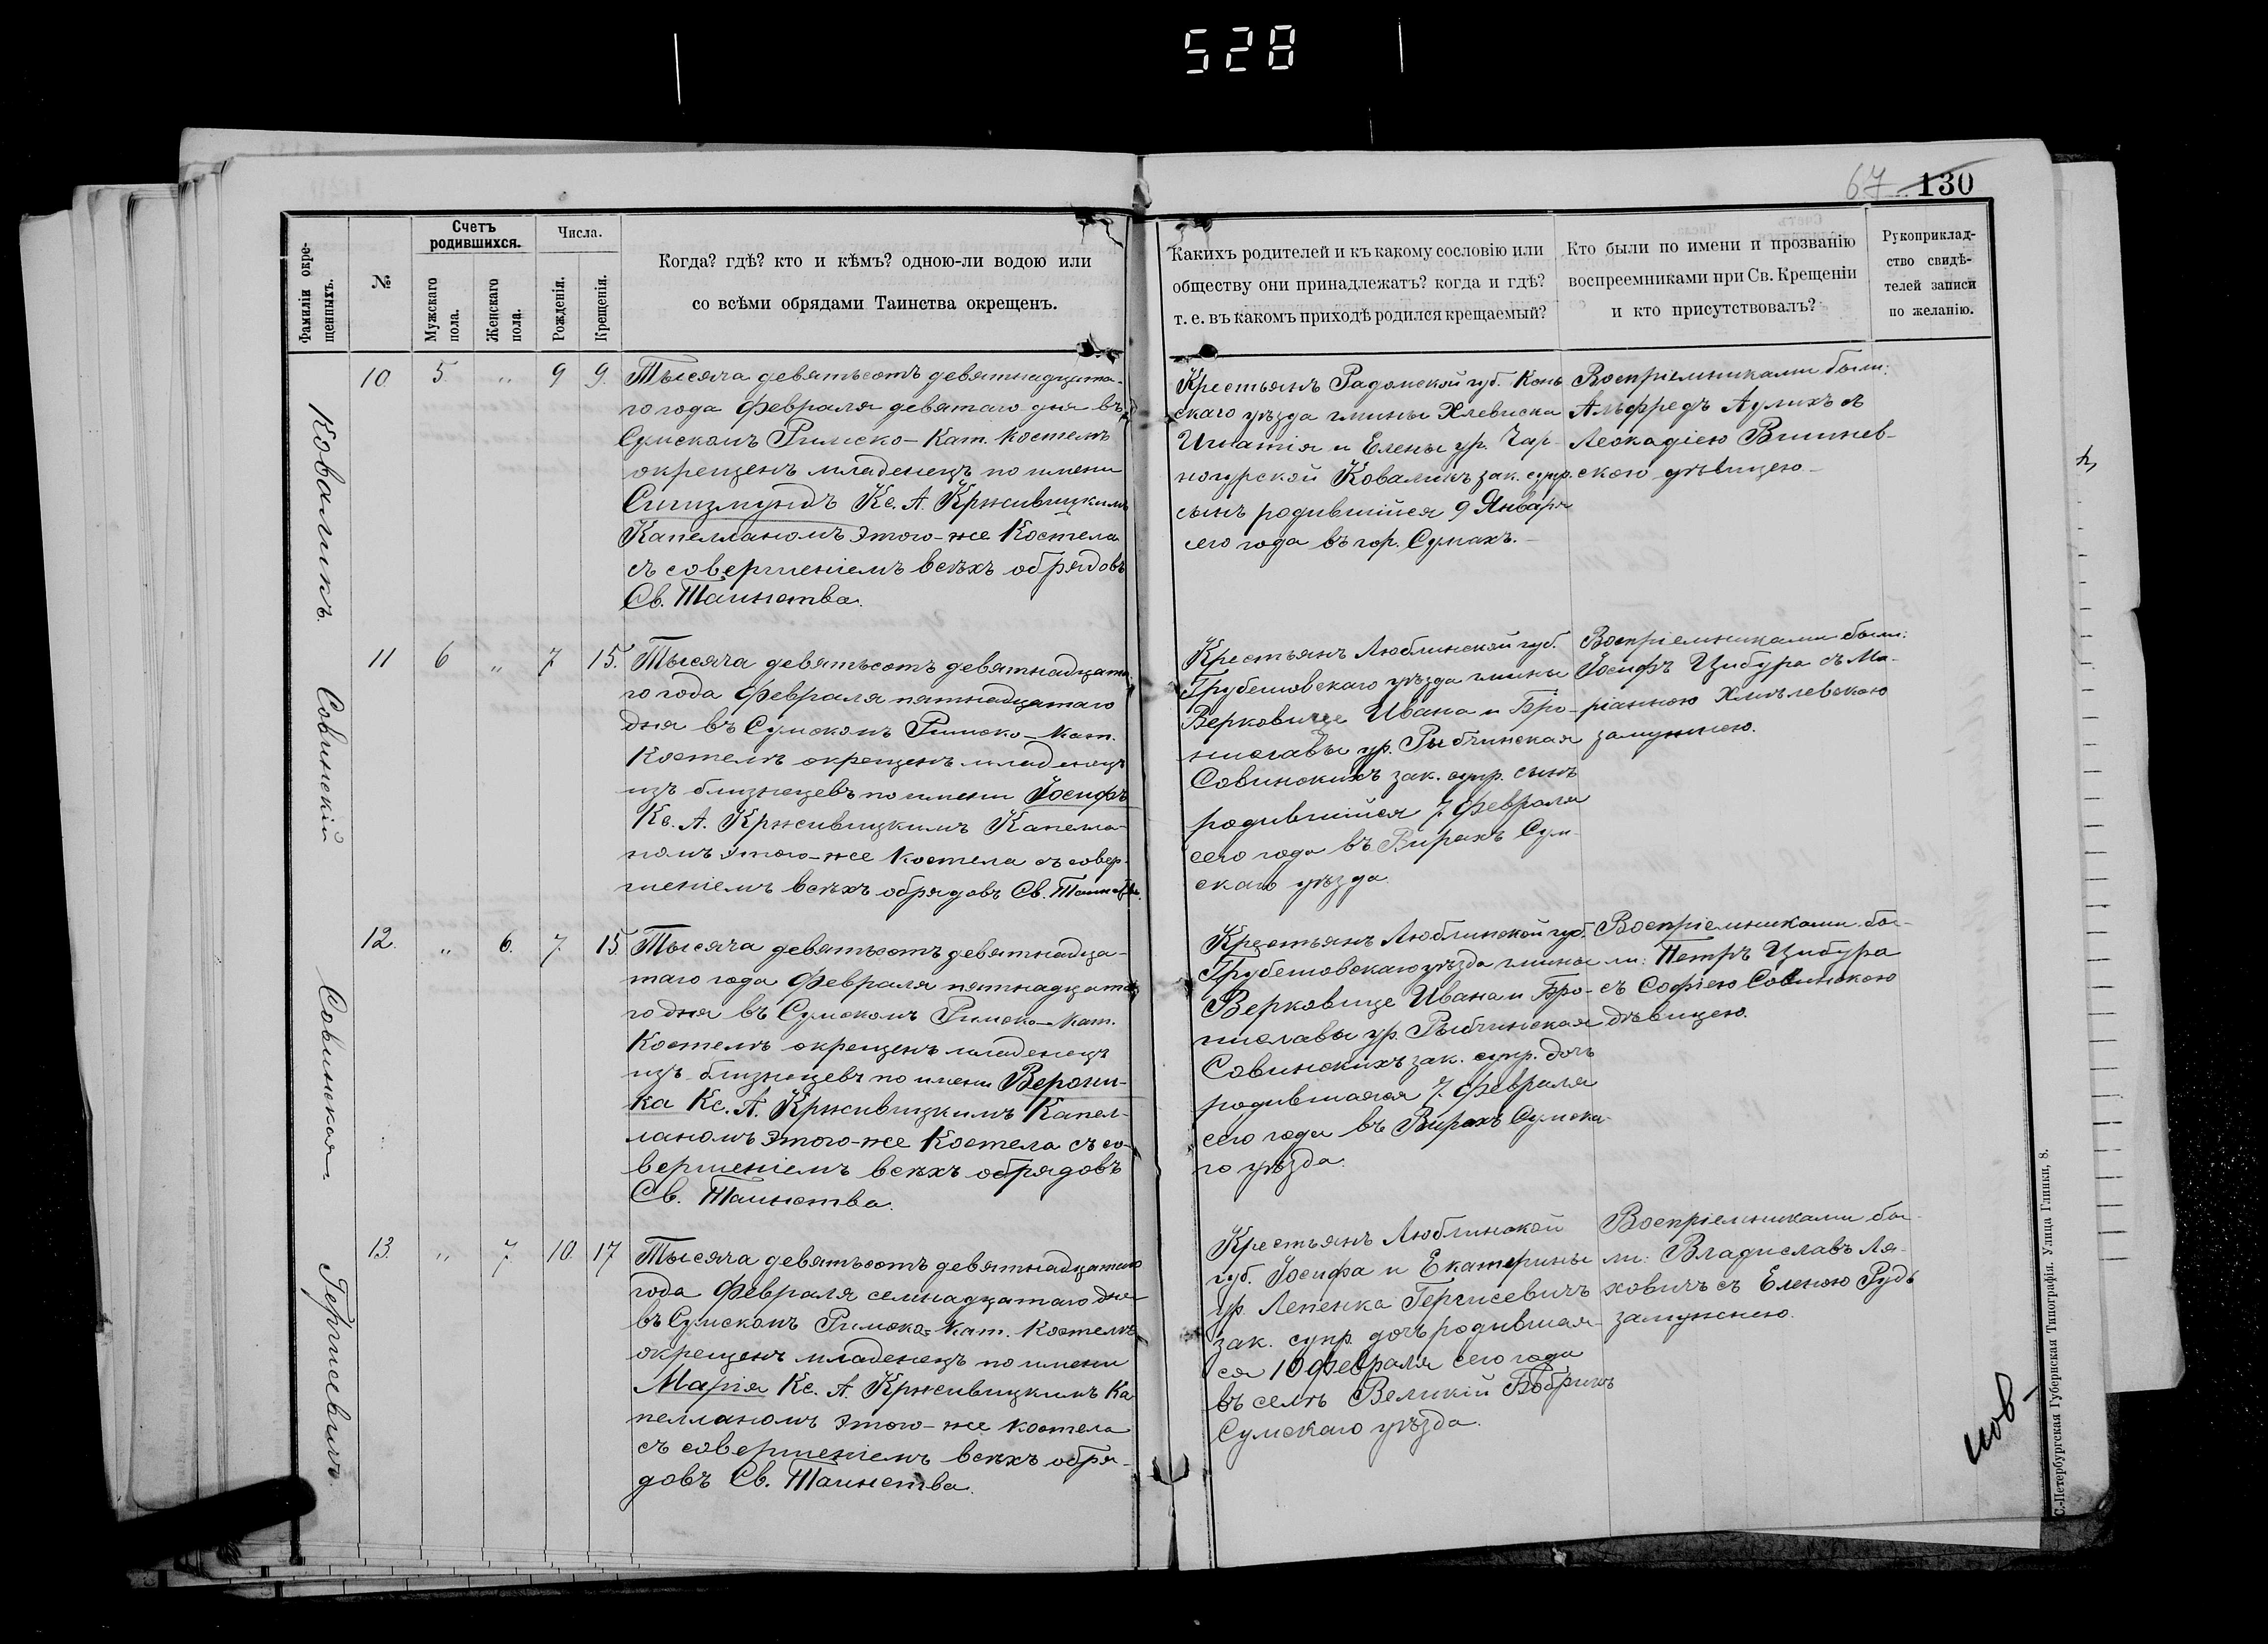 528
67 130
Фамиліи окре-
щенныхъ.
№
Счетъ
родившихся.
Мужскаго
пола.
Женскаго
пола.
Числа.
Рожденія.
Крещенія.
Когда? гдѣ? кто и кѣмъ? одною-ли водою или
со всѣми обрядами Таинства окрещенъ.
Какихъ родителей и къ какому сословію или
обществу они принадлежатъ? когда и гдѣ?
т. е. въ какомъ приходѣ родился крещаемый?
Кто были по имени и прозванію
воспреемниками при Св. Крещеніи
и кто присутствовалъ?
Рукоприклад-
ство свидѣ-
телей записи
по желанію.
Коваликъ.
10. 5. " 9 9.
Тысяча девятьсотъ девятнадцата-
го года февраля девятаго дня въ
Сумскомъ Римско-Кат. Костелѣ
окрещенъ младенецъ по имени
Сигизмундъ Кс. А. Крживицкимъ
Капелланомъ этого-же Костела
съ совершеніемъ всѣхъ обрядовъ
Св. Таинства.
Крестьянъ Радомской губ. Конь
скаго уѣзда гмины Хлевиска
Игнатія и Елены ур. Чар-
ногурской Коваликъ зак. супр.
сынъ родившійся 9 Января
сего года въ гор. Сумахъ.
Воспріемниками были:
Альфредъ Аулихъ съ
Леокадіею Вишнев-
скою дѣвицею
Совинскій
11 6 " 7 15.
Тысяча девятьсотъ девятнадцата
го года февраля пятнадцатаго
дня въ Сумскомъ Римско-Кат.
Костелѣ окрещенъ младенецъ
изъ близнецевъ по имени Іосифъ
Кс. А. Крживицкимъ Капелла-
номъ этого-же Костела съ совер-
шеніемъ всѣхъ обрядовъ Св. Таинства.
Крестьянъ Люблинской губ.
Грубешовскаго уѣзда гмины
Верковице Ивана и Бро-
ниславы ур. Рыбчинская
Совинскихъ зак. супр. сынъ
родившійся 7 февраля
сего года въ Вирахъ Сум-
скаго уѣзда.
Воспріемниками были:
Іосифъ Цибура съ Ма-
ріанною Хмѣлевскою
замужнею.
Совинская
12. " 6. 7. 15
Тысяча девятьсотъ девятнадца-
таго года Февраля пятнадцата
го дня въ Сумскомъ Римско-Кат.
Костелѣ окрещенъ младенецъ
изъ близнецевъ по имени Верони-
ка Кс. А. Крживицкимъ Капел-
ланомъ этого-же Костела съ со-
вершеніемъ всѣхъ обрядовъ
Св. Таинства.
Крестьянъ Люблинской губ.
Грубешовскаго уѣзда гмины
Верковице Ивана и Бро-
ниславы ур. Рыбчинская
Совинскихъ зак. супр. дочь
родившаяся 7 февраля
сего года въ Вирахъ Сумска-
го уѣзда.
Воспріемниками бы-
ли: Петръ Цибура
съ Софіею Совинскою
дѣвицею.
Гергисевичъ
13. " 7. 10. 17
Тысяча девятьсотъ девятнадцатаго
года Февраля семнадцатаго дня
въ Сумскомъ Римско-Кат. Костелѣ
окрещенъ младенецъ по имени
Марія Кс. А. Крживицкимъ Ка
пелланомъ этого-же Костела
съ совершеніемъ всѣхъ обря-
довъ Св. Таинства.
Крестьянъ Люблинской
губ. Іосифа и Екатерины
ур. Лепенка Гергисевичъ
зак. супр. дочь родившая-
ся 10 февраля сего года
въ селѣ Великій Бобрикъ
Сумскаго уѣзда.
Воспріемниками бы-
ли: Владиславъ Ля-
ховичъ съ Еленою Рудь
замужнею.
С.-Петербургская Губернская Типографія. Улица Глинки, 8.